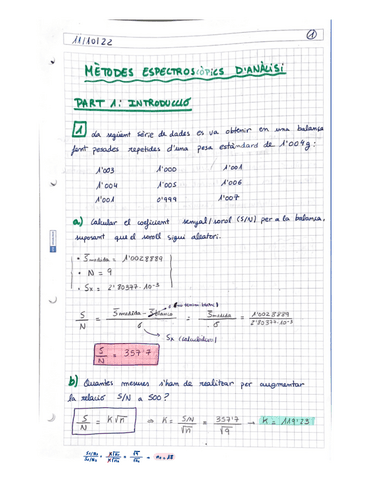 11/10/22
1
MÈTODES ESPECTROSCÒPICS D'ANÀLISI
PART 1: INTRODUCCIÓ
1 La següent sèrie de dades es va obtenir en una balança
fent pesades repetides d'una pesa estàndard de 1'004g:
1'003 1'000 1'001
1'004 1'005 1'006
1'001 0'999 1'007
a) Calcular el coeficient senyal/soroll (S/N) per a la balança,
suposant que el soroll sigui aleatori.
• S̄mesura = 1'0028889
• N = 9
• Sx = 2'80377·10⁻³
S/N = (S̄mesura - S̄blanco)/σ = S̄mesura/σ = 1'0028889/2'80377·10⁻³
Sx (calculadora)
S/N = 357'7
b) Quantes mesures s'han de realitzar per augmentar
la relació S/N a 500?
S/N = K√n ⇒ K = (S/N)/√n = 357'7/√9 → K = 119'23